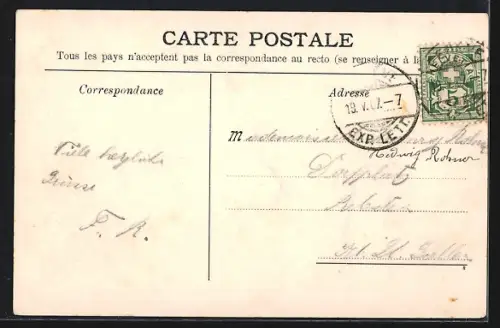 CARTE POSTALE
Tous les pays n'acceptent pas la correspondance au recto (se renseigner à la
Correspondance
Adresse
19. V. 07.-7
EXP. LETT.
HELVETIA
Mademoiselle
Hedwig Rohner
Dorfplatz
Rebstein
Kt. St. Gallen
Viele herzliche
Grüsse
F. R.